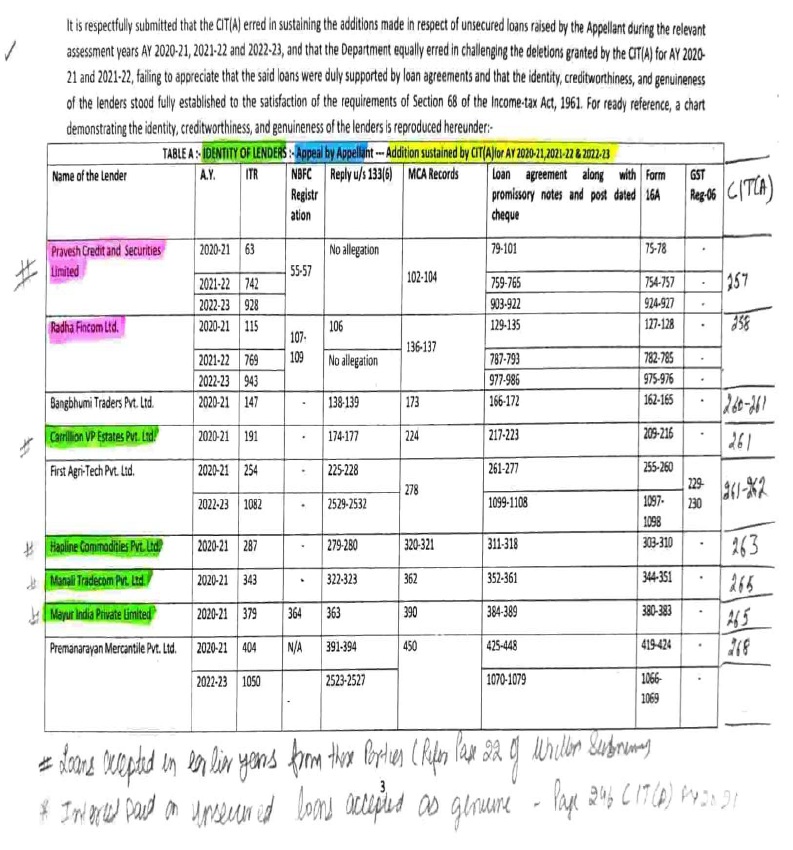 It is respectfully submitted that the CIT(A) erred in sustaining the additions made in respect of unsecured loans raised by the Appellant during the relevant
assessment years AY 2020-21, 2021-22 and 2022-23, and that the Department equally erred in challenging the deletions granted by the CIT(A) for AY 2020-
21 and 2021-22, failing to appreciate that the said loans were duly supported by loan agreements and that the identity, creditworthiness, and genuineness
of the lenders stood fully established to the satisfaction of the requirements of Section 68 of the Income-tax Act, 1961. For ready reference, a chart
demonstrating the identity, creditworthiness, and genuineness of the lenders is reproduced hereunder:-
TABLE A :- IDENTITY OF LENDERS :- Appeal by Appellant --- Addition sustained by CIT(A)for AY 2020-21,2021-22 & 2022-23
Name of the Lender A.Y. ITR NBFC Registration Reply u/s 133(6) MCA Records Loan agreement along with promissory notes and post dated cheque Form 16A GST Reg-06 CIT(A)
# Pravesh Credit and Securities Limited 2020-21 63 55-57 No allegation 102-104 79-101 75-78 - 257
2021-22 742 759-765 754-757 -
2022-23 928 903-922 924-927 -
Radha Fincom Ltd. 2020-21 115 107-109 106 136-137 129-135 127-128 - 258
2021-22 769 No allegation 787-793 782-785 -
2022-23 943 977-986 975-976 -
Bangbhumi Traders Pvt. Ltd. 2020-21 147 - 138-139 173 166-172 162-165 - 260-261
# Carrillion VP Estates Pvt. Ltd. 2020-21 191 - 174-177 224 217-223 209-216 - 261
First Agri-Tech Pvt. Ltd. 2020-21 254 - 225-228 278 261-277 255-260 229-230 261-262
2022-23 1082 - 2529-2532 1099-1108 1097-1098
# Hapline Commodities Pvt. Ltd. 2020-21 287 - 279-280 320-321 311-318 303-310 - 263
# Manali Tradecom Pvt. Ltd. 2020-21 343 - 322-323 362 352-361 344-351 - 265
# Mayur India Private Limited 2020-21 379 364 363 390 384-389 380-383 - 265
Premanarayan Mercantile Pvt. Ltd. 2020-21 404 N/A 391-394 450 425-448 419-424 - 268
2022-23 1050 - 2523-2527 1070-1079 1066-1069 -
# Loans accepted in earlier years from these Parties (Refer Page 22 of Written Submission
3
* Interest paid on unsecured loans accepted as genuine - Page 246 CIT(A)